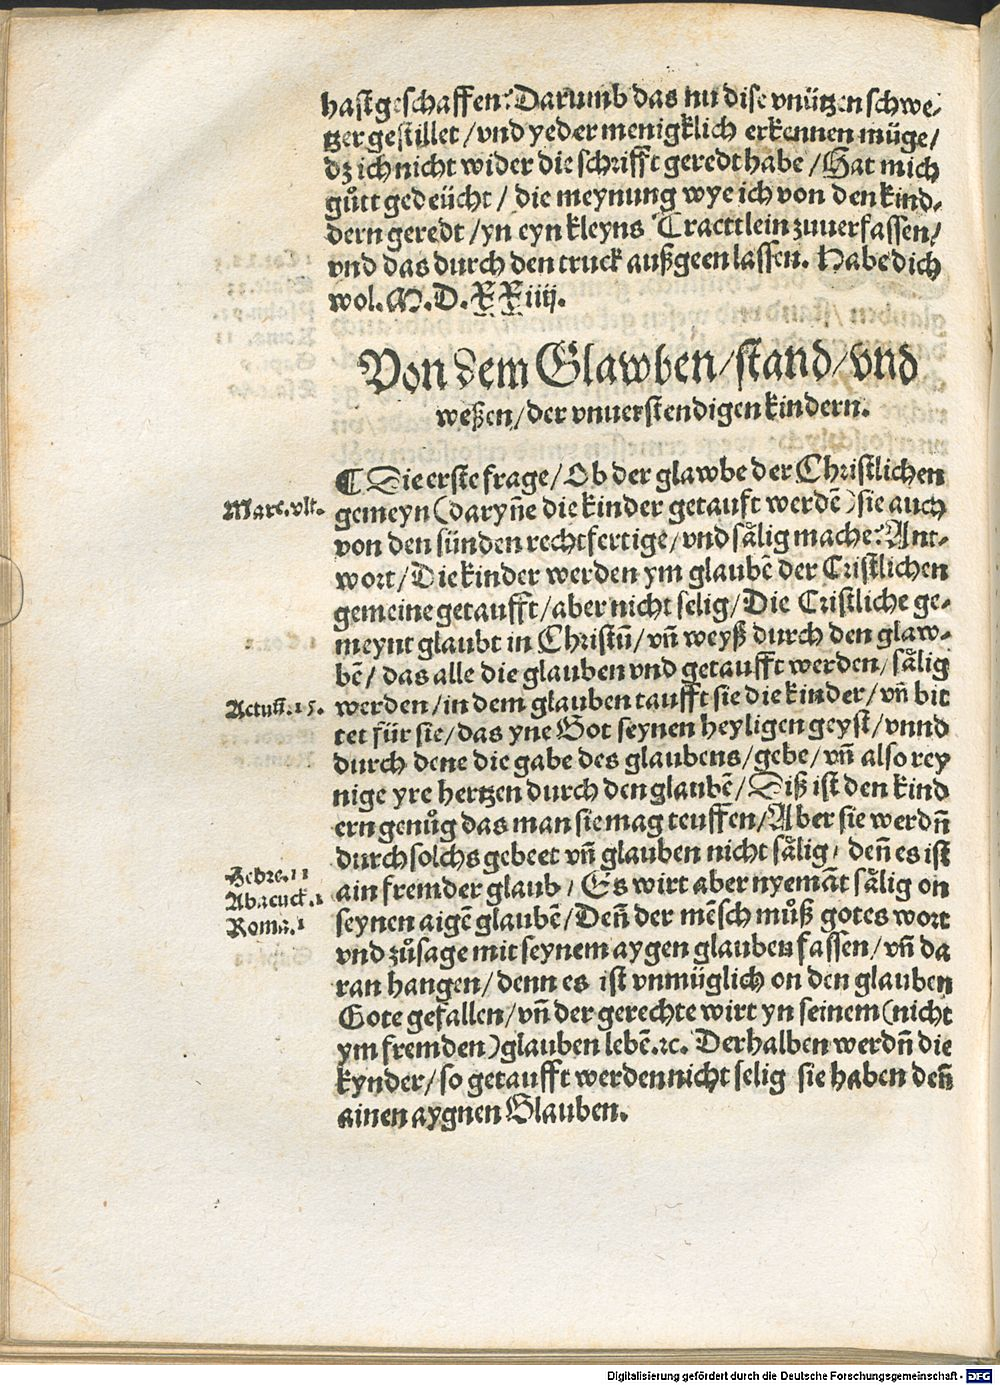 hast geschaffen? Darumb das nu dise vnützen schwe⸗
tzer gestillet / vnd yeder menigklich erkennen müge /
dz ich nicht wider die schrifft geredt habe / Hat mich
gůtt gedeücht / die meynung wye ich von den kind⸗
dern geredt / yn eyn kleyns Tracttlein zuuerfassen /
vnd das durch den truck außgeen lassen. Habe dich
wol. M. D. XXiiij.
Von dem Glawben / stand / vnd
weßen / der vnuerstendigen kindern.
¶ Die erste frage / Ob der glawbe der Christlichen
Marc. vlt.
gemeyn (daryñe die kinder getauft werdẽ) sie auch
von den sünden rechtfertige / vnd sålig mache? Ant⸗
wort / Die kinder werden ym glaubẽ der Cristlichen
gemeine getaufft / aber nicht selig / Die Cristliche ge⸗
meynt glaubt in Christũ / vñ weyß durch den glaw⸗
bẽ / das alle die glauben vnd getaufft werden / sålig
Actuũ. 15.
werden / in dem glauben taufft sie die kinder / vñ bit
tet für sie / das yne Got seynen heyligen geyst / vnnd
durch dene die gabe des glaubens / gebe / vñ also rey
nige yre hertzen durch den glaubẽ / Diß ist den kind
ern genůg das man sie mag teuffen / Aber sie werdñ
durch solchs gebeet vñ glauben nicht sålig / deñ es ist
Hebre. 11
ain fremder glaub / Es wirt aber nyemãt sålig on
Abacuck. 1
Roma. 1
seynen aigẽ glaubẽ / Deñ der mẽsch můß gotes wort
vnd zůsage mit seynem aygen glauben fassen / vñ da
ran hangen / denn es ist vnmüglich on den glauben
Gote gefallen / vñ der gerechte wirt yn seinem (nicht
ym fremden) glauben lebẽ. ꝛc. Derhalben werdñ die
kynder / so getaufft werden nicht selig sie haben deñ
ainen aygnen Glauben.
Digitalisierung gefördert durch die Deutsche Forschungsgemeinschaft - DFG